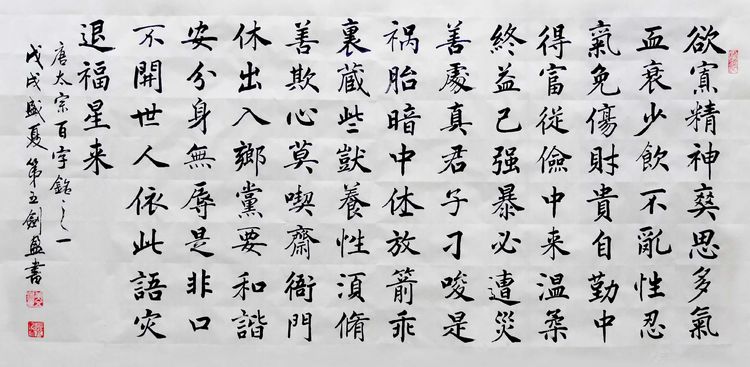 欲寡精神爽思多氣
血衰少飲不亂性忍
氣免傷財貴自勤中
得富從儉中来温柔
終益己强暴必遭災
善處真君子刁唆是
祸胎暗中休放箭乖
裏藏些獃養性須脩
善欺心莫喫齋衙門
休出入鄉黨要和諧
安分身無辱是非口
不開世人依此語灾
退福星来
唐太宗百字銘之一
戊戌盛夏第五劍盈書